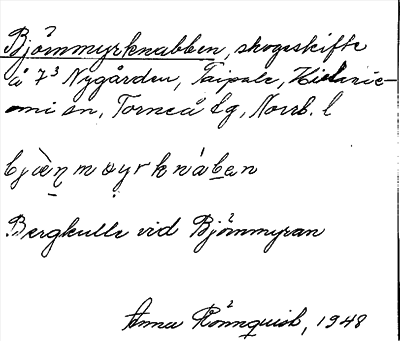 Björnmyrknabben, skogsskifte
å 7³ Nygården, Taipale, Hietanie-
mi sn, Torneå tg, Norrb. l
bjæ̀ṇmøyrknábən
Bergkulle vid Björnmyran
Anna Rönnquist, 1948